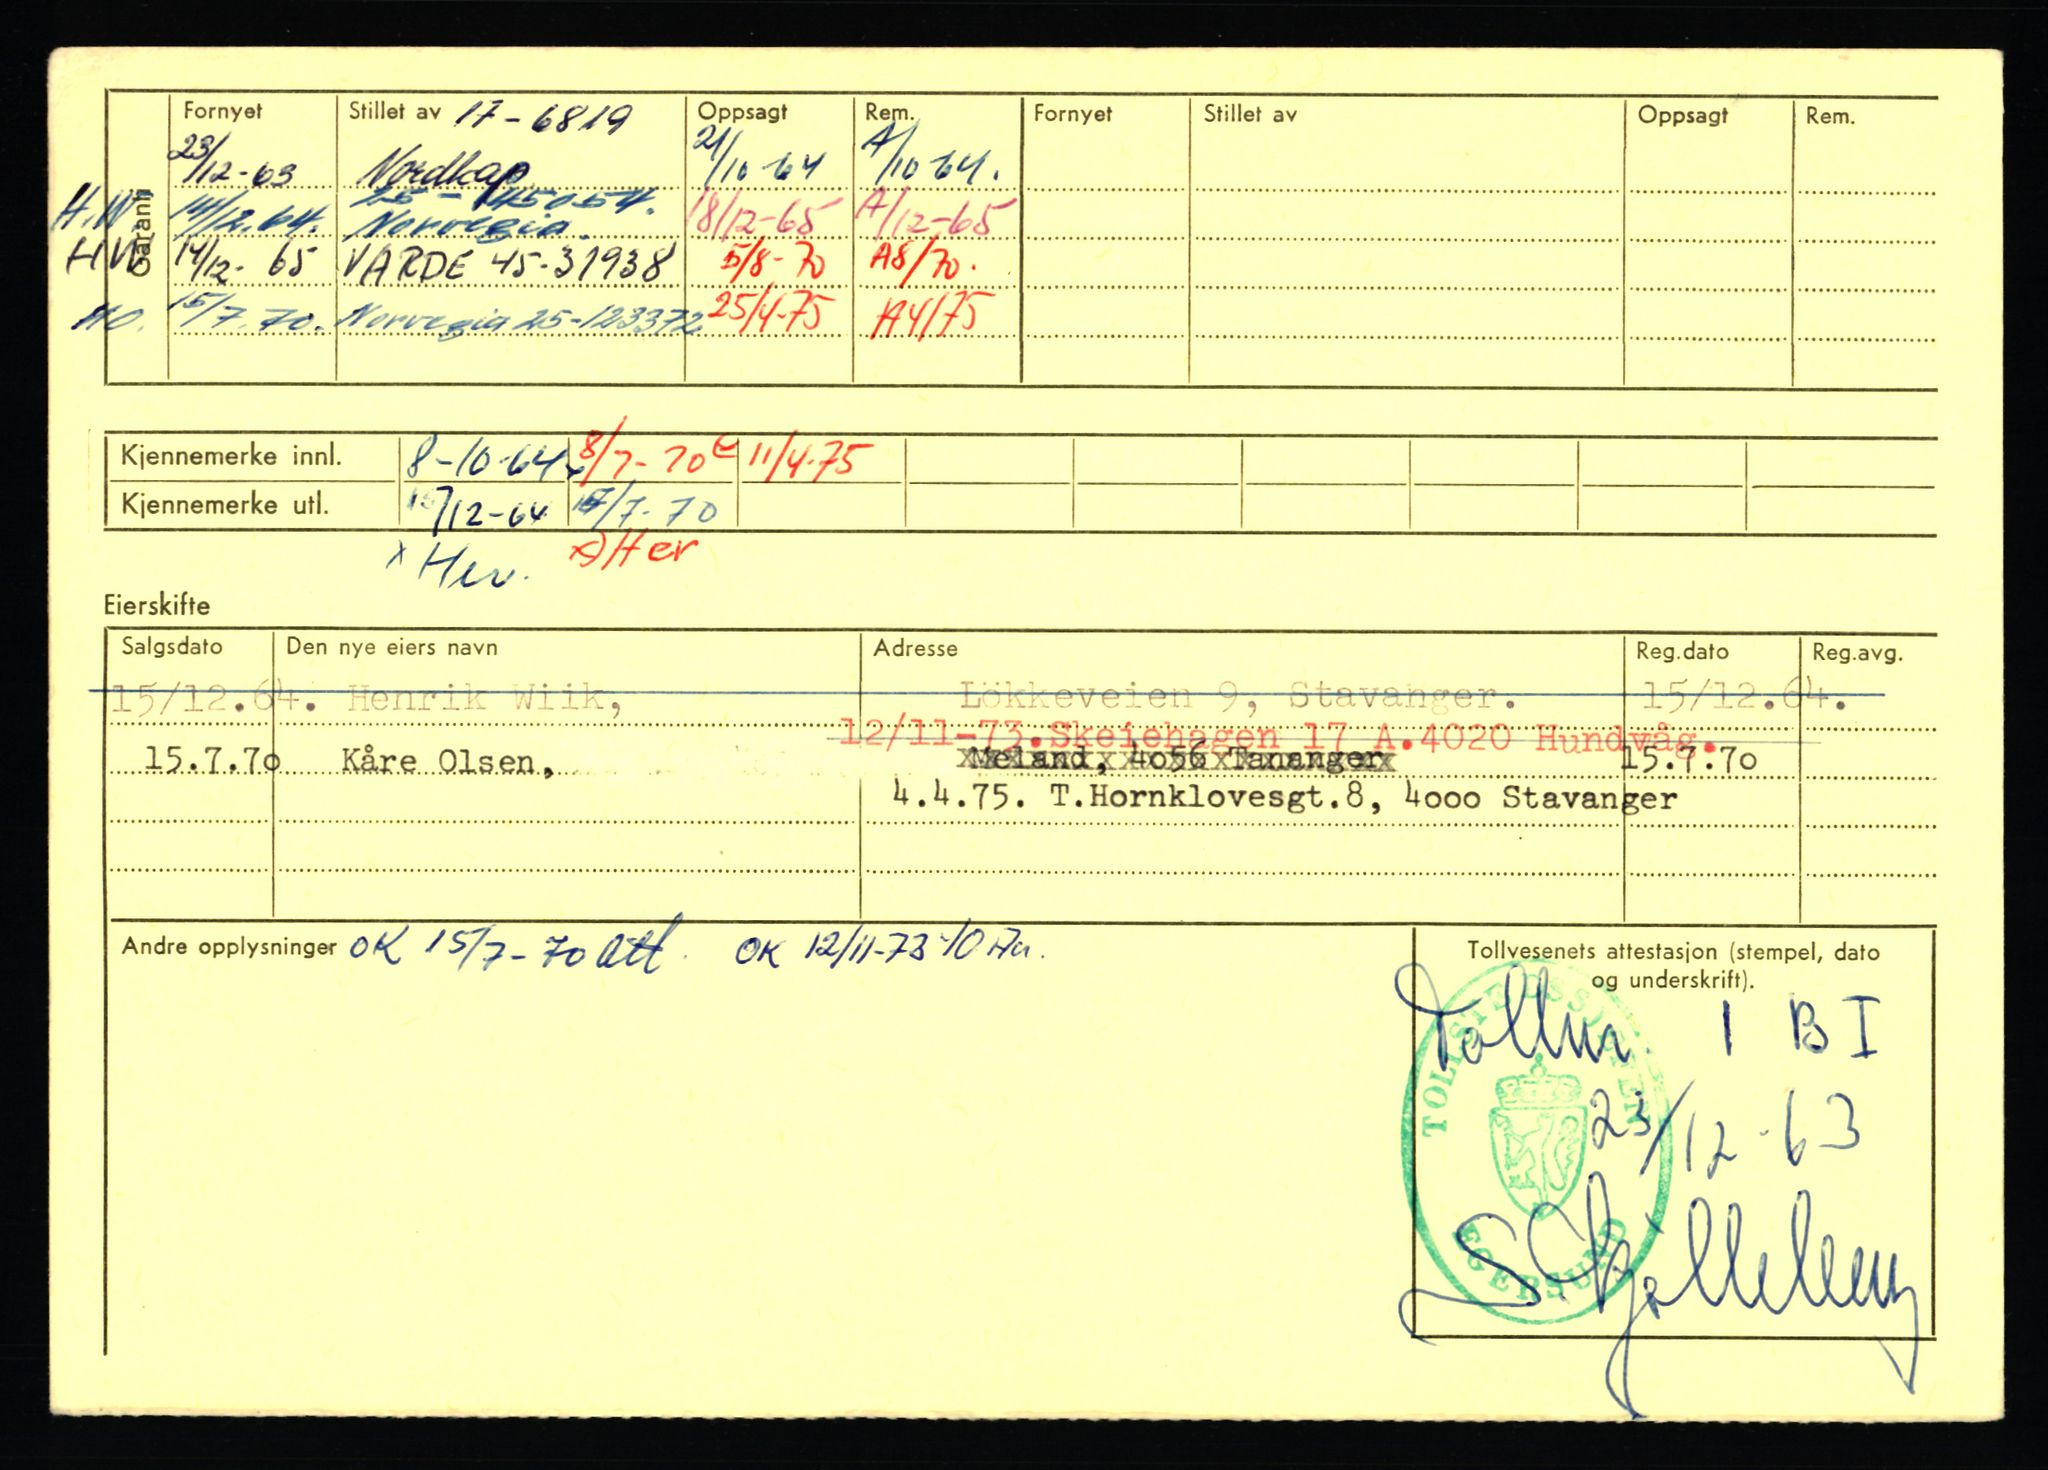 Fornyet Stillet av 17-6819 Oppsagt Rem. Fornyet Stillet av Oppsagt Rem.
Garanti
23/12-63 Nordkap 21/10-64 A/10-64.
H.W. 14/12.64. 25-145054. Norvegia. 18/12-65 A/12-65
HW 14/12-65 VARDE 45-31938 5/8-70 A8/70.
15/7.70. Norvegia 25-123372 25/4-75 A4/75
Kjennemerke innl. 8-10-64 8/7-70 11/4-75
Kjennemerke utl. 15/12-64 15/7-70
x Her. x) Her
Eierskifte
Salgsdato Den nye eiers navn Adresse Reg.dato Reg.avg.
15/12.64. Henrik Wiik, Lökkeveien 9, Stavanger. 15/12.64.
12/11-73.Skeiehagen 17 A.4020 Hundvåg.
15.7.70 Kåre Olsen, Meland, 4o56 Tananger 15.7.7o
4.4.75. T.Hornklovesgt.8, 4ooo Stavanger
Andre opplysninger OK 15/7-70 OK 12/11-73
Tollvesenets attestasjon (stempel, dato
og underskrift).
1 B I
23/12-63
TOLLSTEDSSJEFEN
EGERSUND